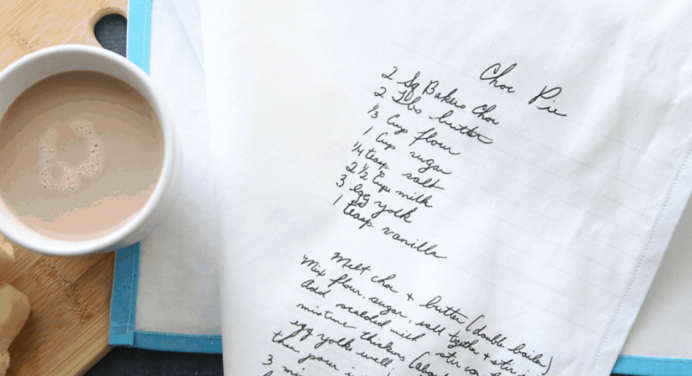 Choc Pie
2 Sq Bakers Choc
2 Tbs butter
⅓ Cup flour
1 Cup sugar
¼ teasp salt
2 ½ Cup milk
3 egg yolk
1 teasp vanilla
Melt choc + butter (double boiler)
Mix flour, sugar, salt tgeth + stir in
Add scalded milk stir
mixture thickens
egg yolks well
thin pour
3